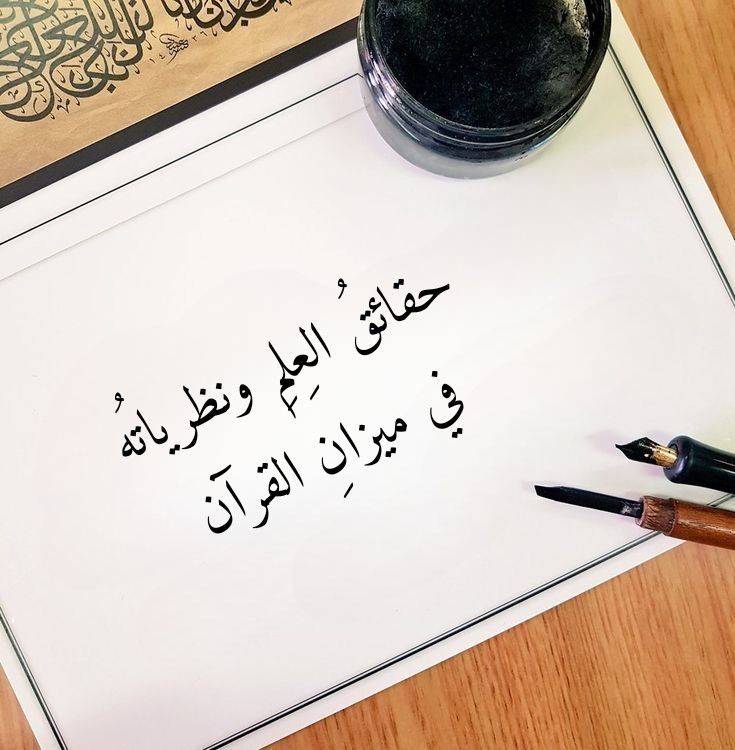 حقائقُ العِلِمِ ونظرياتهُ
في ميزانِ القرآن